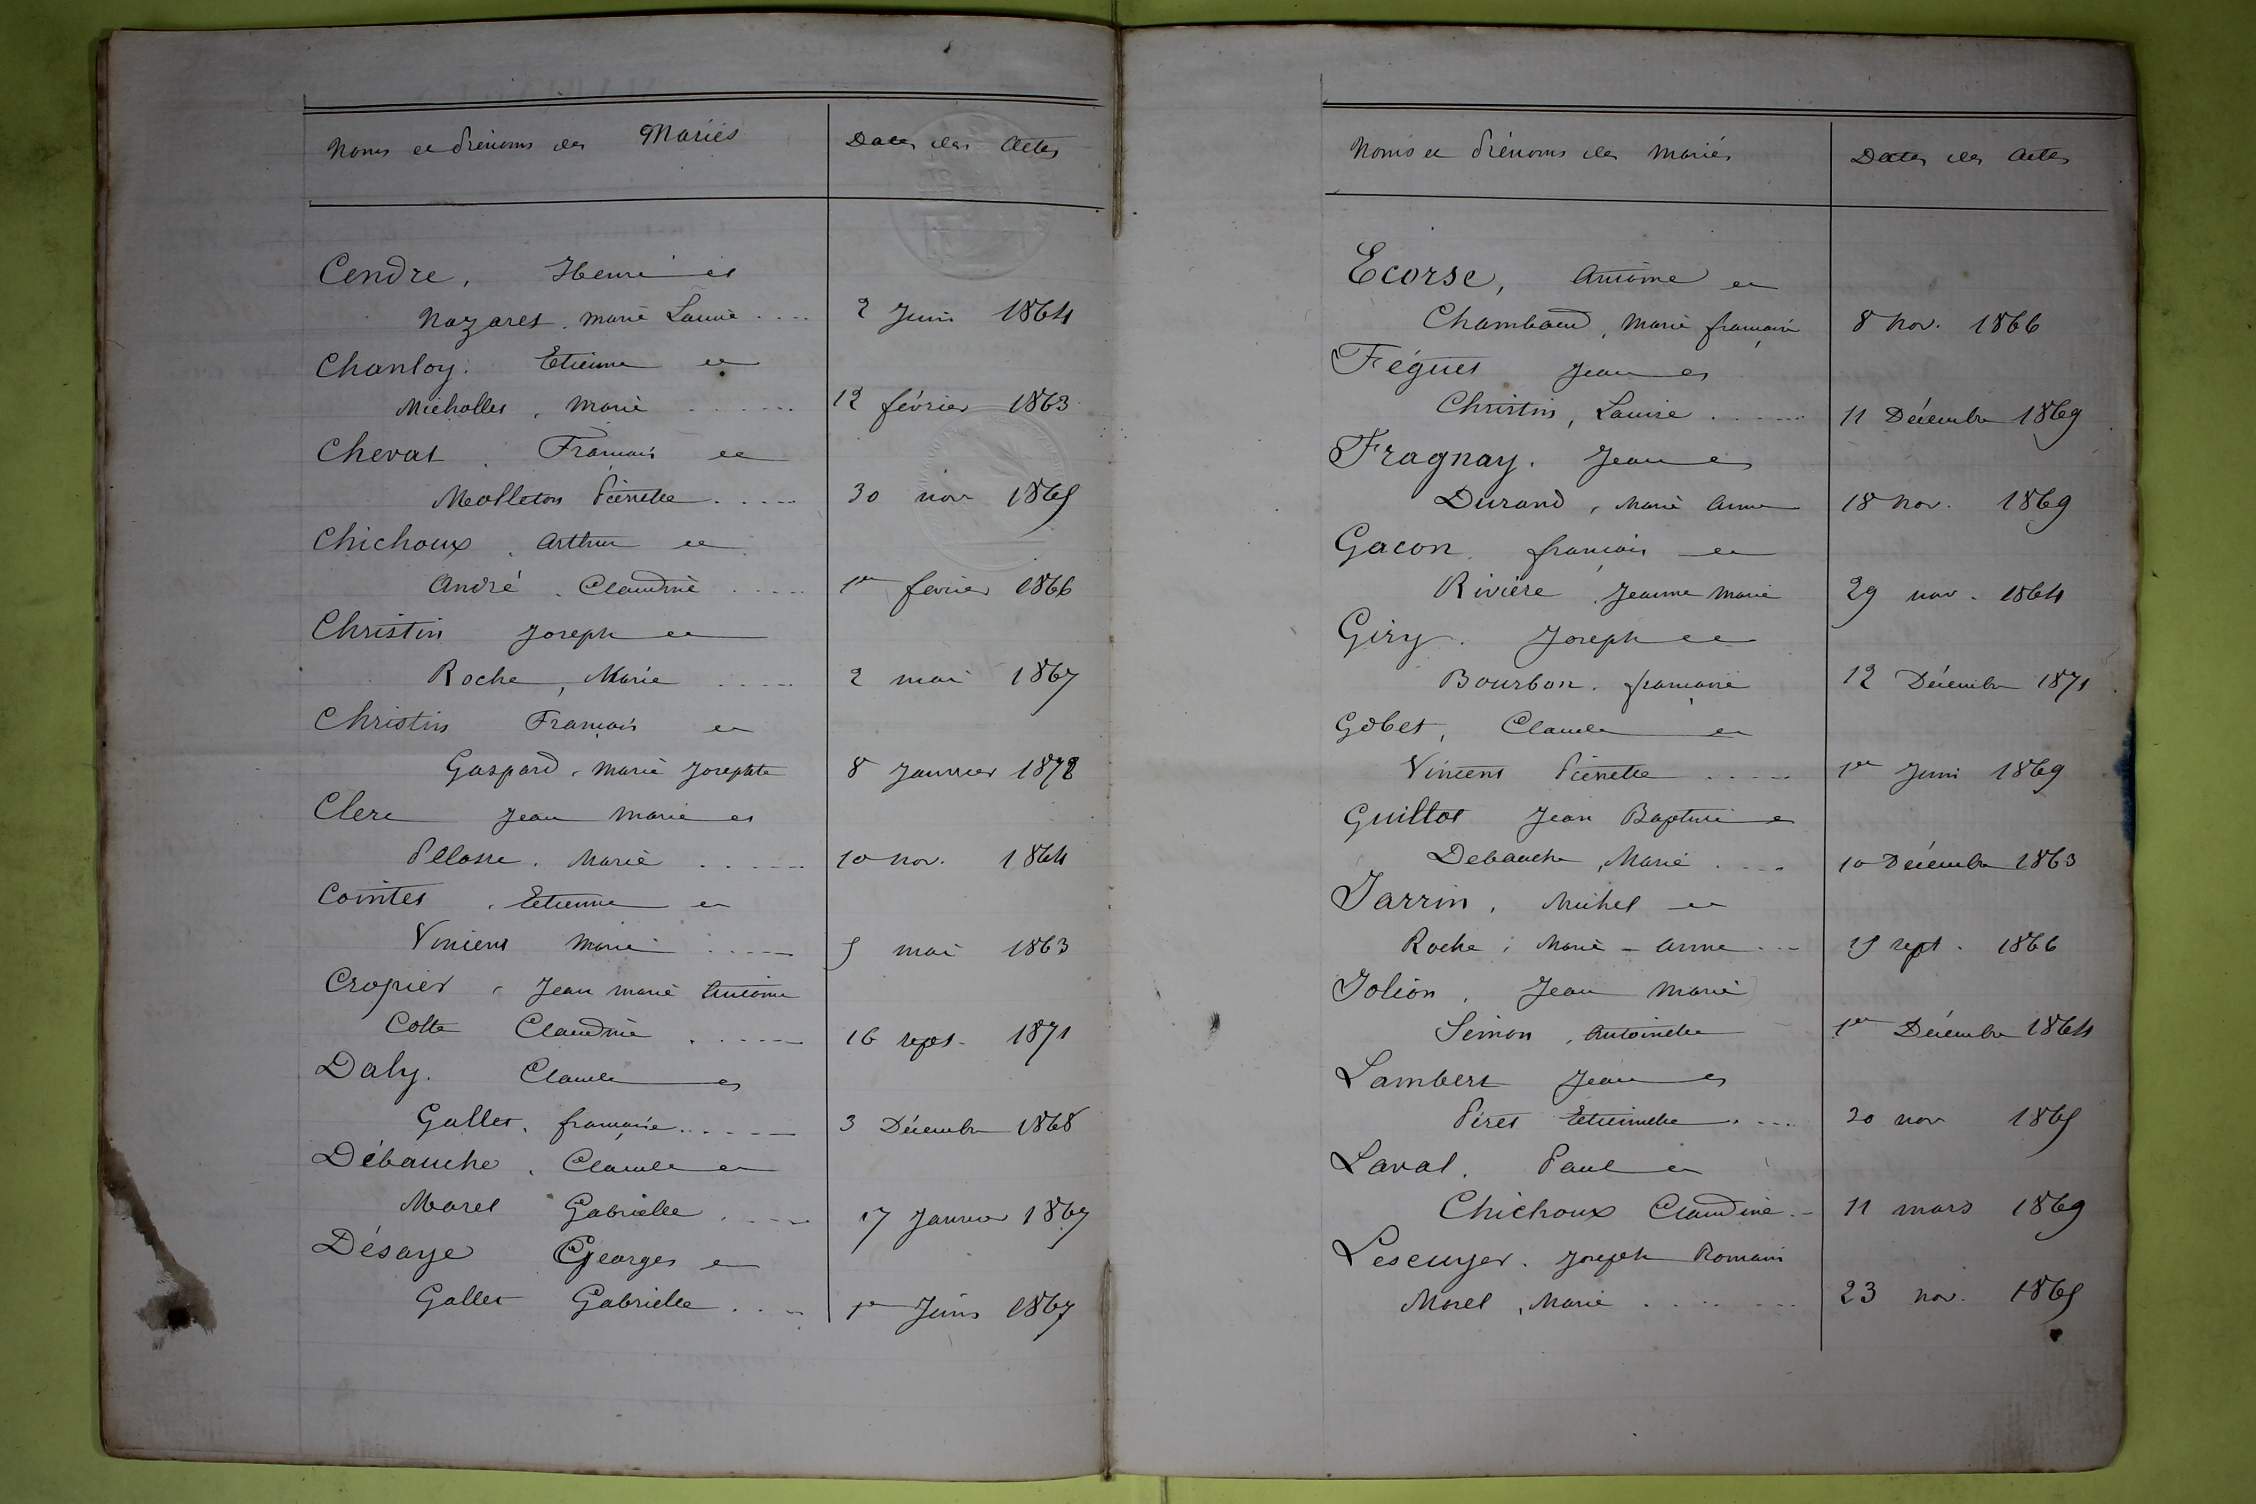 Noms et Prénoms des Mariés Dates des Actes
Cendre, Henri et
Nazaret, Marie Louise .... 2 Juin 1864
Chantoy. Etienne et
Micholles, Marie ...... 12 février 1863
Chevat. François et
Malleton Pierrette ..... 30 nov 1865
Chichoux, Arthur et
André, Claudine .... 1er fevrier 1866
Christin Joseph et
Roche, Marie ..... 2 mai 1867
Christin François et
Gaspard, Marie Josephte 8 Janvier 1872
Clerc Jean Marie et
Pelosse, Marie ..... 10 nov. 1864
Cointet, Etienne et
Vinient Marie ..... 5 mai 1863
Cropier, Jean Marie Antoine
Colte Claudine ...... 16 sept. 1871
Daly. Claude et
Gallet, françoise ...... 3 Décembre 1868
Débauche, Claude et
Morel Gabrielle ..... 17 Janvier 1867
Désaye Georges et
Gallet Gabrielle .... 1er Juin 1867
Noms et Prénoms des Mariés Dates des Actes
Ecorse, Antoine et
Chambaud, Marie françoise 8 nov. 1866
Fégues Jean et
Christin, Louise ...... 11 Décembre 1869
Fragnay. Jean et
Durand, Marie Anne 18 nov. 1869
Gacon. françois et
Rivière Jeanne Marie 29 nov. 1864
Giry. Joseph et
Bourbon. françoise 12 Décembre 1871
Gobet, Claude et
Vinient Pierrette ..... 1er Juin 1869
Guillot Jean Baptiste et
Debauche, Marie .... 10 Décembre 1863
Jarrin, Michel et
Roche, Marie - Anne ... 25 sept. 1866
Jolion, Jean Marie
Simon, Antoinette 1er Décembre 1864
Lambert Jean et
Piret Etiennette .... 20 nov 1865
Laval. Paul et
Chichoux Claudine.. 11 mars 1869
Lescuyer. Joseph Romain
Morel, Marie ........ 23 nov. 1865